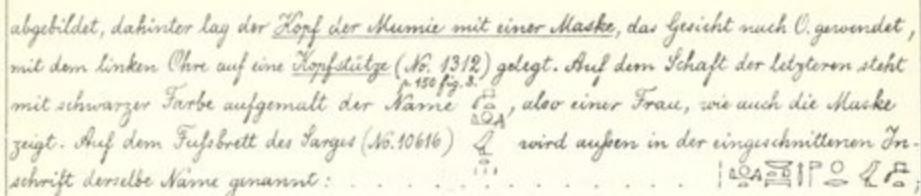 abgebildet, dahinter lag der Kopf der Mumie mit einer Maske, das Gesicht nach O. gewendet,
mit dem linken Ohre auf eine Kopfstütze (No. 1312) gelegt. Auf dem Schaft der letzteren steht
p. 150 fig. 3.
mit schwarzer Farbe aufgemalt der Name , also einer Frau, wie auch die Maske
zeigt. Auf dem Fußbrett des Sarges (No. 10616) wird außen in der eingeschnittenen In-
schrift derselbe Name genannt: . . . . . . . . . . . .